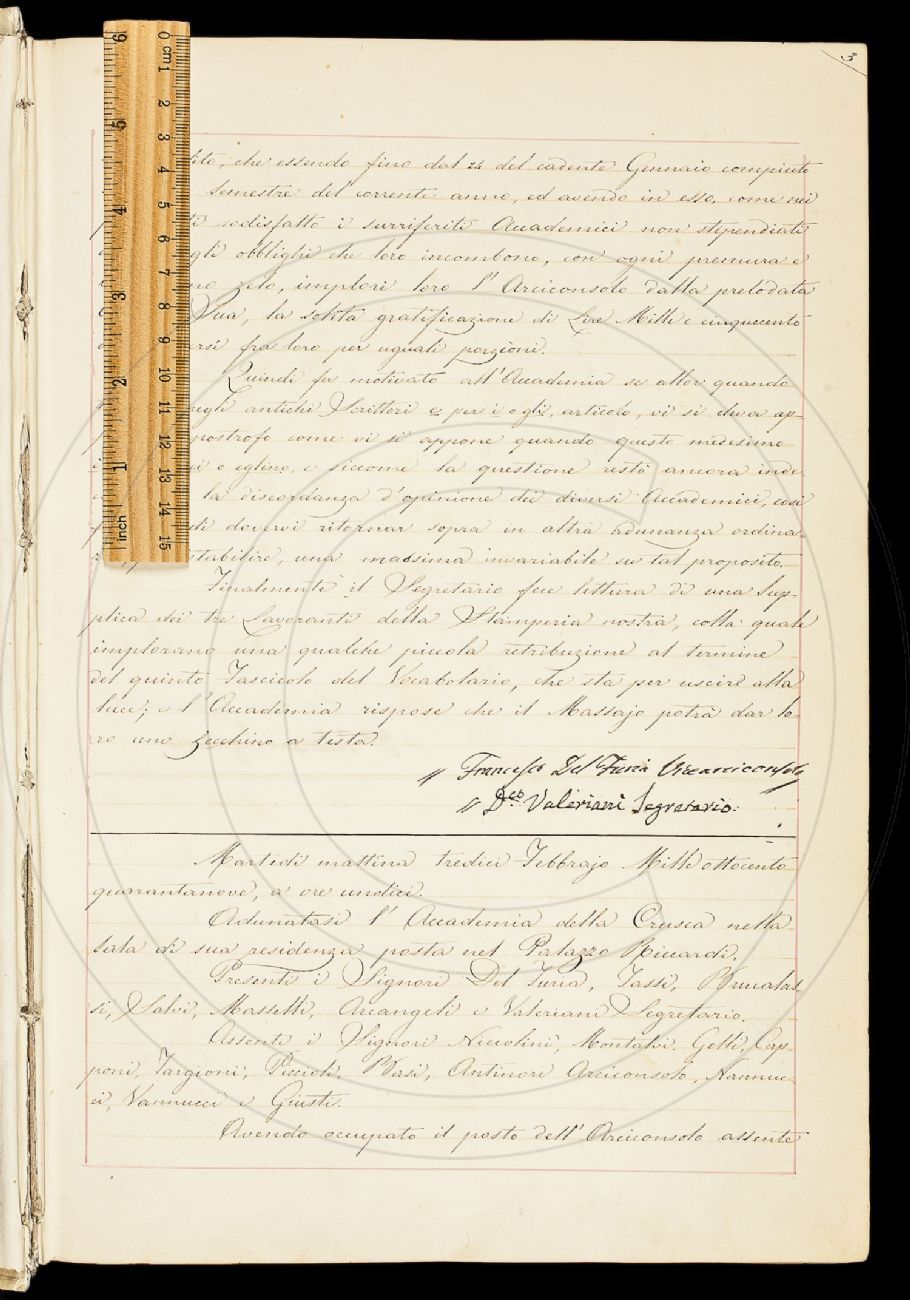 3
tito, che essendo fino dal 24 del cadente Gennaio compiuto
semestre del corrente anno, ed avendo in esso, come nei
sodisfatto i surriferiti Accademici non stipendiati
gli obblighi che loro incombono, con ogni premura e
zelo, implori loro l'Arciconsolo dalla prelodata
Sua, la solita gratificazione di Lire Mille e cinquecento
fra loro per uguali porzioni.
Quindi fu motivato all'Accademia se allor quando
negli antichi Scrittori per i o gli, articolo, vi si deva ap-
postrofo come vi si appone quando questo medesimo
o eglino, e siccome la questione restò ancora inde
la discordanza d'opinione dei diversi Accademici, così
di dovervi ritornar sopra in altra adunanza ordina-
stabilire, una massima invariabile su tal proposito.
Finalmente il Segretario fece lettura di una Sup-
plica dei tre Lavoranti della Stamperia nostra, colla quale
implorano una qualche piccola retribuzione al termine
del quinto Fascicolo del Vocabolario, che sta per uscire alla
luce; e l'Accademia rispose che il Massajo potrà dar lo-
ro uno zecchino a testa.
// Francesco Del Furia Vicearciconsolo
// Dco Valeriani Segretario.
Martedì mattina tredici Febbrajo Mille ottocento
quarantanove, a ore undici.
Adunatasi l'Accademia della Crusca nella
sala di sua residenza posta nel Palazzo Riccardi.
Presenti i Signori Del Furia, Tassi, Brucalas-
si, Salvi, Masselli, Arcangeli e Valeriani Segretario.
Assenti i Signori Niccolini, Montalvi, Gelli, Cap-
poni, Targioni, Piccioli, Basi, Antinori Arciconsolo, Nannuc-
ci, Vannucci e Giusti.
Avendo occupato il posto dell'Arciconsolo assente
inch
1
2
3
4
5
6
0 cm 1
2
3
4
5
6
7
8
9
10
11
12
13
14
15